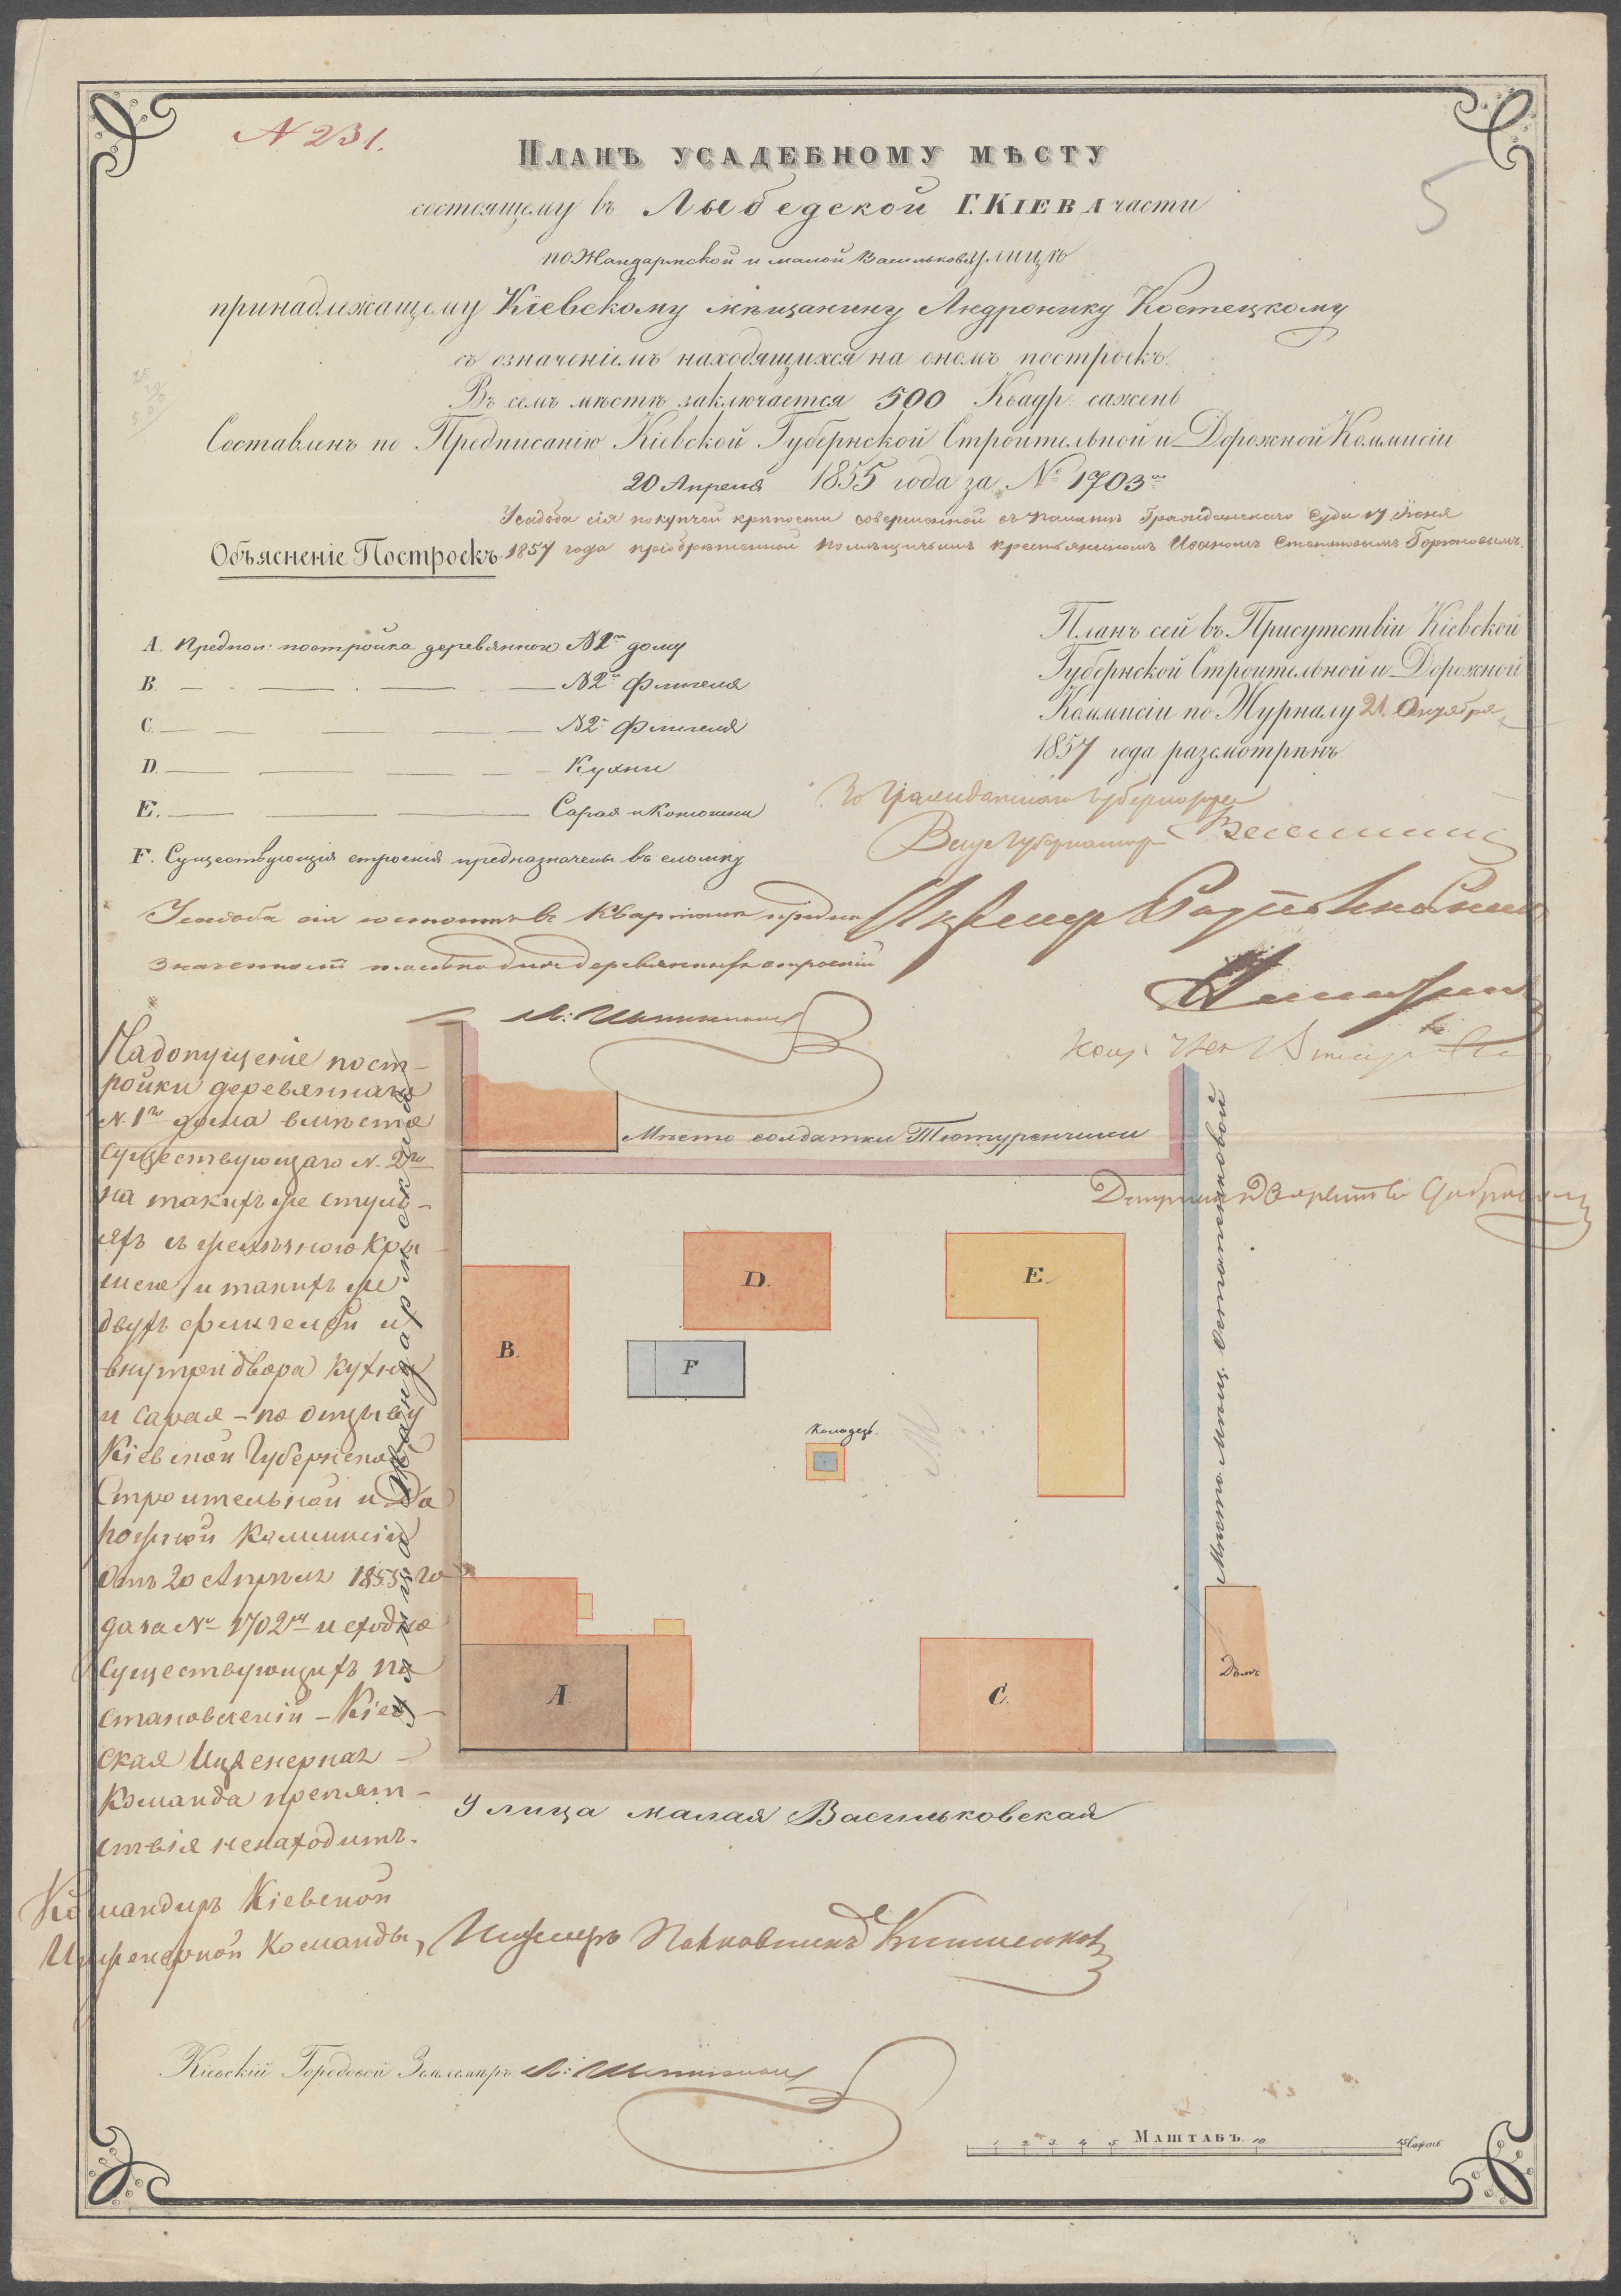 N 231.
5
Планъ усадебному мѣсту
состоящему въ Лыбедской Г. Кіева части
по Жандармской и малой Васильковс. улицѣ
принадлежащему Кіевскому мѣщанину Андронику Костецкому
съ означеніемъ находящихся на ономъ построекъ.
Въ семъ мѣстѣ заключается 500 Квадр. сажень
Составленъ по Предписанію Кіевской Губернской Строительной и Дорожной Коммисіи
20 Апреля 1855 года за № 1703
Усадьба сія по купчей крѣпости совершонной въ палатѣ Гражданскаго Суда 17 Іюня
1857 года пріобрѣтенной помѣщичьимъ крестьяниномъ Иваномъ
Объясненіе Построекъ
A. Предпол: постройка деревяннаго N1 дому
B. — N2 Флигеля
C. — N2 Флигеля
D. — Кухни
E. — Сарая и Конюшни
F. Существующія строенія предназначены въ сломку
Планъ сей въ Присутствіи Кіевской
Губернской Строительной и Дорожной
Коммисіи по Журналу 21 Октября
1857 года разсмотрѣнъ
За Гражданскаго Губернатора
Вице Губернаторъ
Усадьба сія состоитъ въ Кварталѣ
деревянныхъ строеній
На допущеніе пост-
ройки деревяннаго
N. 1го дома вмѣсто
существующаго N. 2го
на такихъ же стуль-
яхъ съ желѣзною кры-
шею и такихъ же
двухъ флигелей и
внутри двора кухни
и сарая - по отзыву
Кіевской Губернской
Строительной и До
рожной Коммисіи
отъ 20 Апрѣля 1855 го
да за № 1702 и сходно
существующихъ по
становленій - Кіев-
ская Инженерная
Команда препят-
ствія не находитъ.
Командиръ Кіевской
Инженерной Команды, Инженеръ Полковникъ
улица Жандармская
Мѣсто солдатки Тютюренчихи
Мѣсто мѣщ.
B.
D.
E.
F
Колодезь.
A
C.
Домъ
Улица малая Васильковская
Кіевскій Городовой Землемѣръ
Маштабъ.
1 2 3 4 5 10 15 Сажень